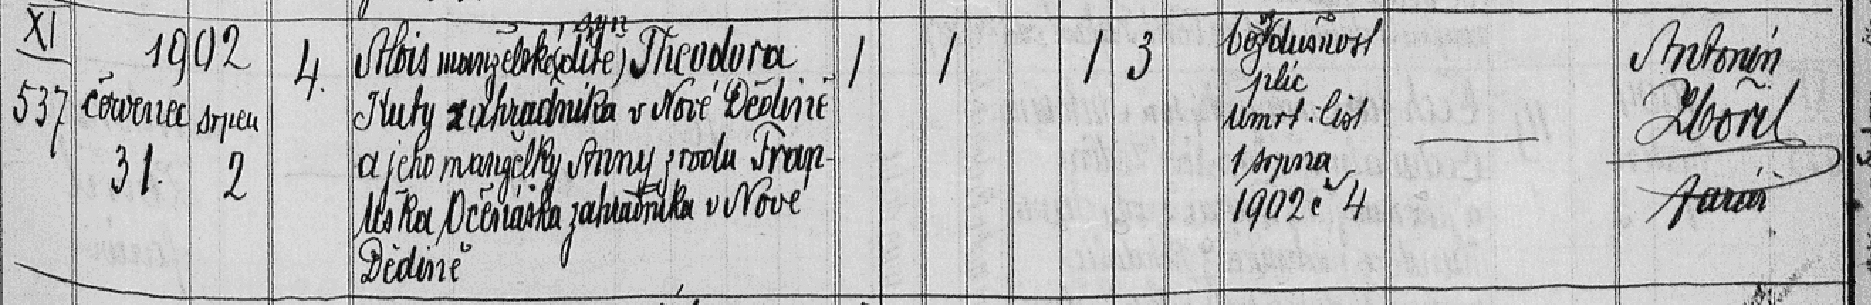 XI
537
1902
červenec
31.
srpen
2
4.
syn
Alois manželské (dítě) Theodora
Kuty zahradníka v Nové Dědině
a jeho manželky Anny z rodu Fran-
tiška Očenáška zahradníka v Nové
Dědině
1
1
1 3
bezdušnost
plic
úmrt. list
1 srpna
1902 č 4
Antonín
Zbořil
farář